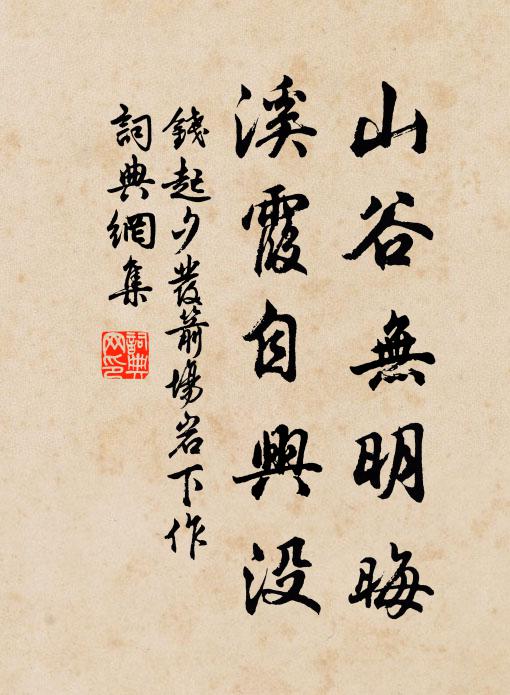 山谷無明晦
溪霞自興没
錢起夕發箭場岩下作
詞典網集
詞典網印